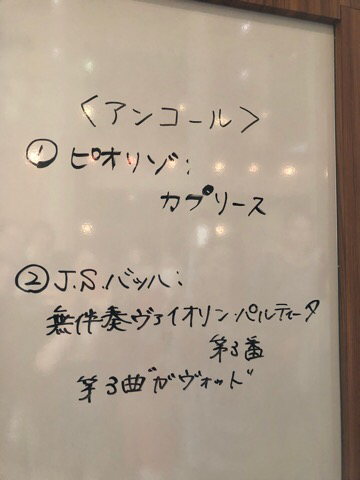 <アンコール>
① ピオリゾ:
カプリース
② J.S.バッハ:
無伴奏ヴァイオリン・パルティータ
第3番
第3曲"ガヴォット"